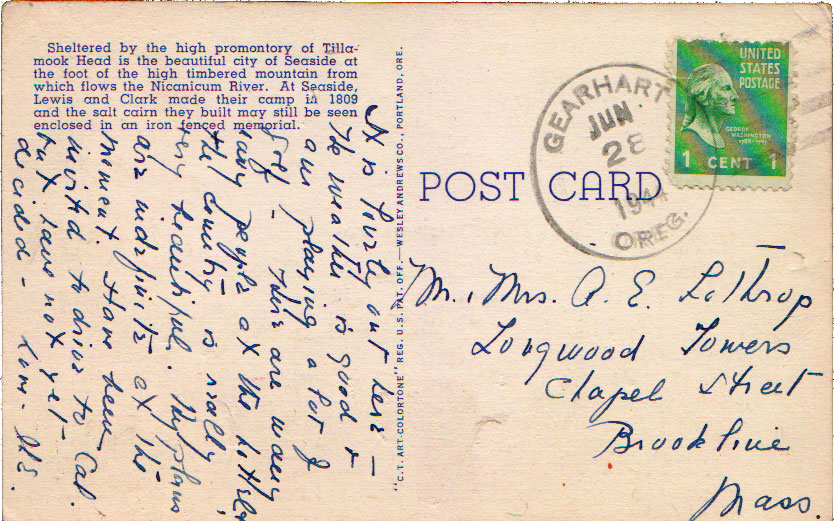 Sheltered by the high promontory of Tilla-
mook Head is the beautiful city of Seaside at
the foot of the high timbered mountain from
which flows the Nicanicum River. At Seaside,
Lewis and Clark made their camp in 1809
and the salt cairn they built may still be seen
enclosed in an iron fenced memorial.
It is lovely out here —
the weather is good &
am playing a lot of
golf - There are many
navy people at the hotel &
the country is really
very beautiful. My plans
are indefinite at the
moment. Have been
invited to drive to Cal.
but have not yet
decided -
"C.T. ART-COLORTONE" REG. U.S. PAT. OFF.—WESLEY ANDREWS CO., PORTLAND, ORE.
POST CARD
GEARHART
JUN
28
1944
OREG.
UNITED
STATES
POSTAGE
GEORGE
WASHINGTON
1 CENT 1
Mr. & Mrs. A. E. Lothrop
Longwood Towers
Chapel Street
Brookline
Mass.